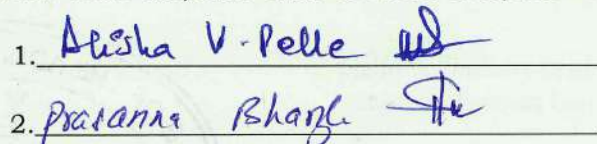 1. Alisha V. Pelle
2. Prasanna Bhangle